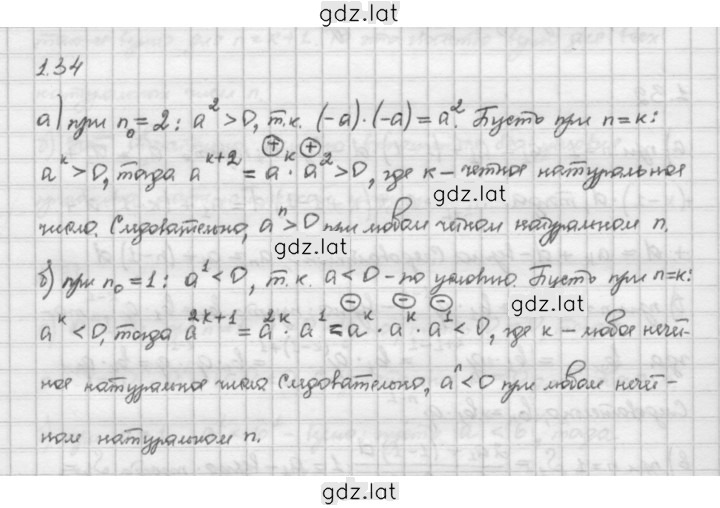 gdz.lat
1.34
а) при n₀=2: a²>0, т.к. (-a)·(-a)=a². Пусть при n=к:
aᵏ>0, тогда aᵏ⁺²=aᵏ·a²>0, где к – четное натуральное
⊕ ⊕
число. Следовательно, aⁿ>0 при любом четном натуральном n.
gdz.lat
б) при n₀=1: a¹<0, т.к. a<0 – по условию. Пусть при n=к:
⊖ ⊖ ⊖
gdz.lat
aᵏ<0, тогда a²ᵏ⁺¹=a²ᵏ·a¹=aᵏ·aᵏ·a¹<0, где к – любое нечёт-
ное натуральное число. Следовательно, aⁿ<0 при любом нечёт-
gdz.lat
ном натуральном n.
gdz.lat